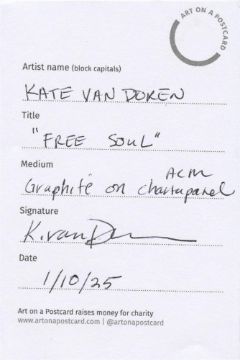 ART ON A POSTCARD
Artist name (block capitals)
KATE VAN DOREN
Title
"FREE SOUL"
Medium
ACM
Graphite on chartapanel
Signature
K.van D
Date
1/10/25
Art on a Postcard raises money for charity
www.artonapostcard.com | @artonapostcard